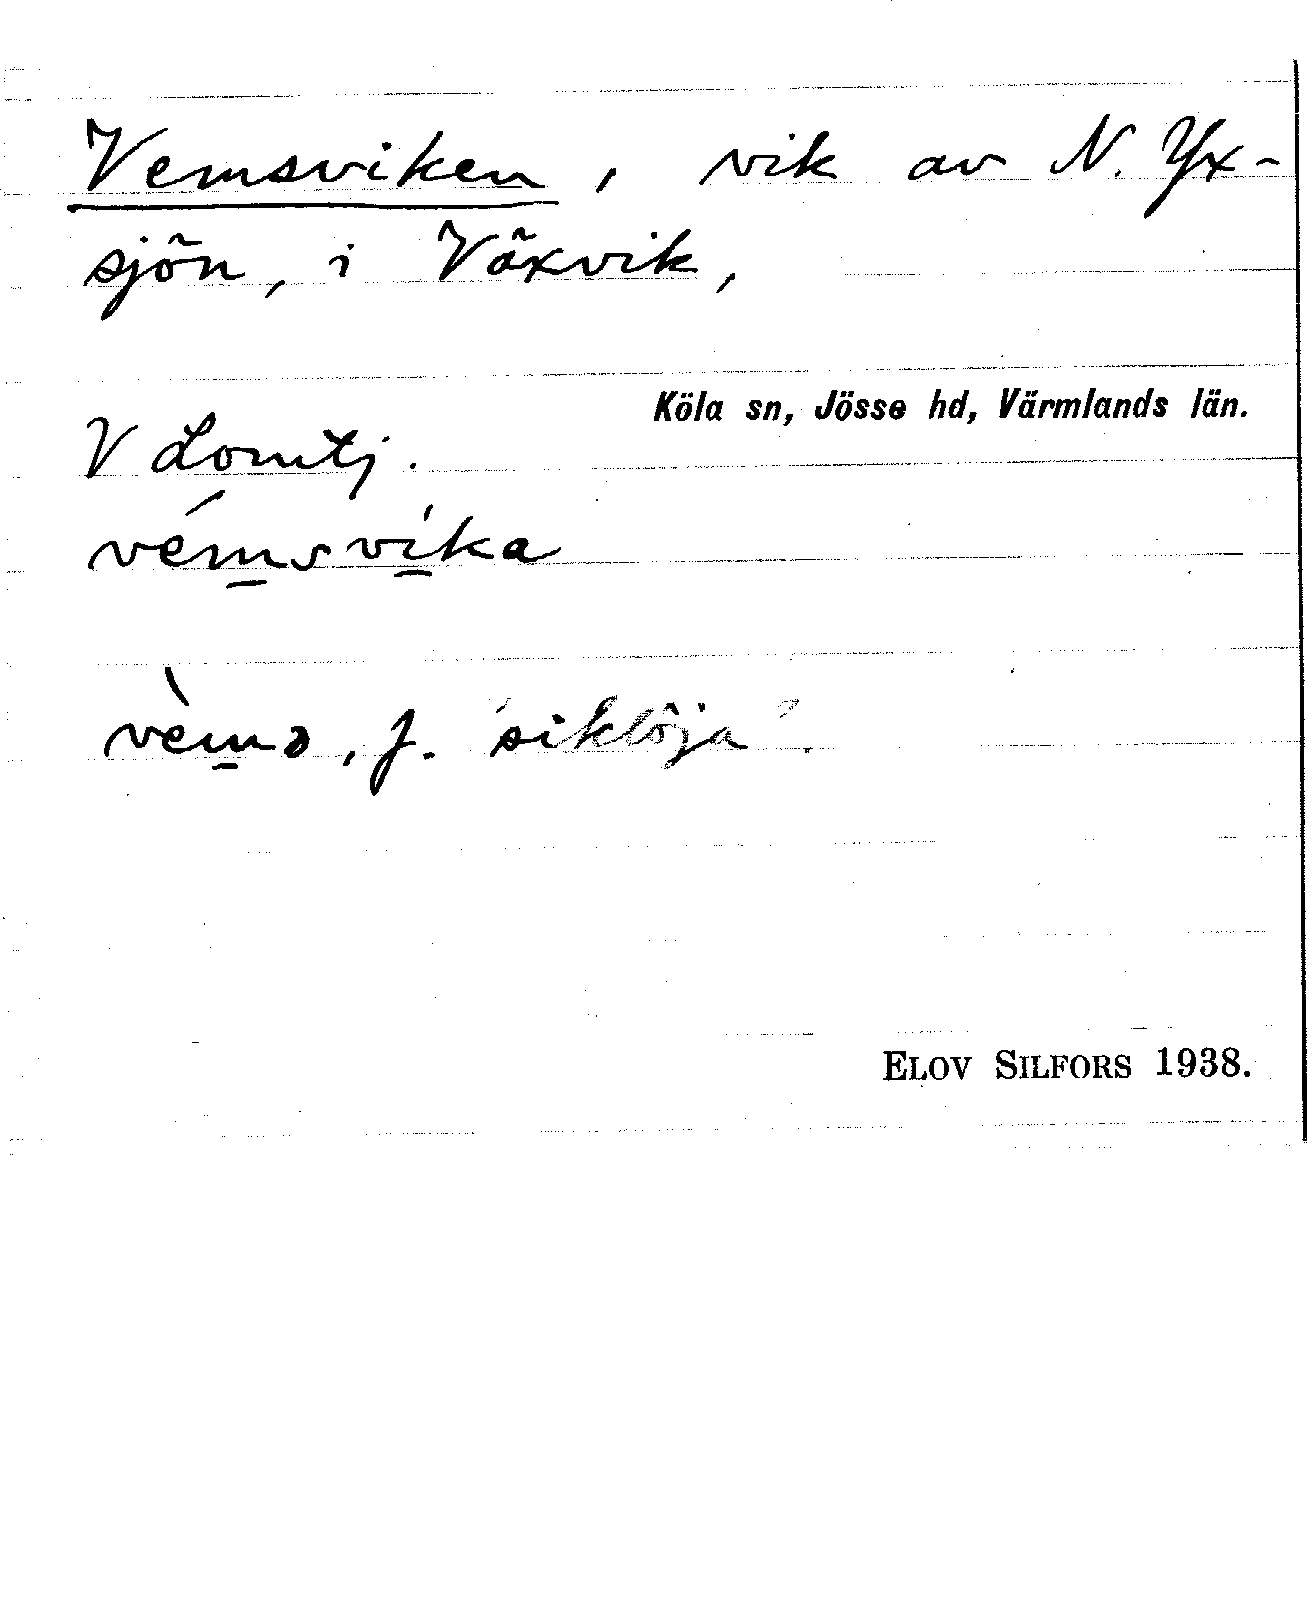 Vemsviken, vik av N. Yx-
sjön, i Växvik,
Köla sn, Jösse hd, Värmlands län.
V Lomtj.
vém̲svi̲̍ka
vèm̲ə, f. 'siklöja'.
ELOV SILFORS 1938.